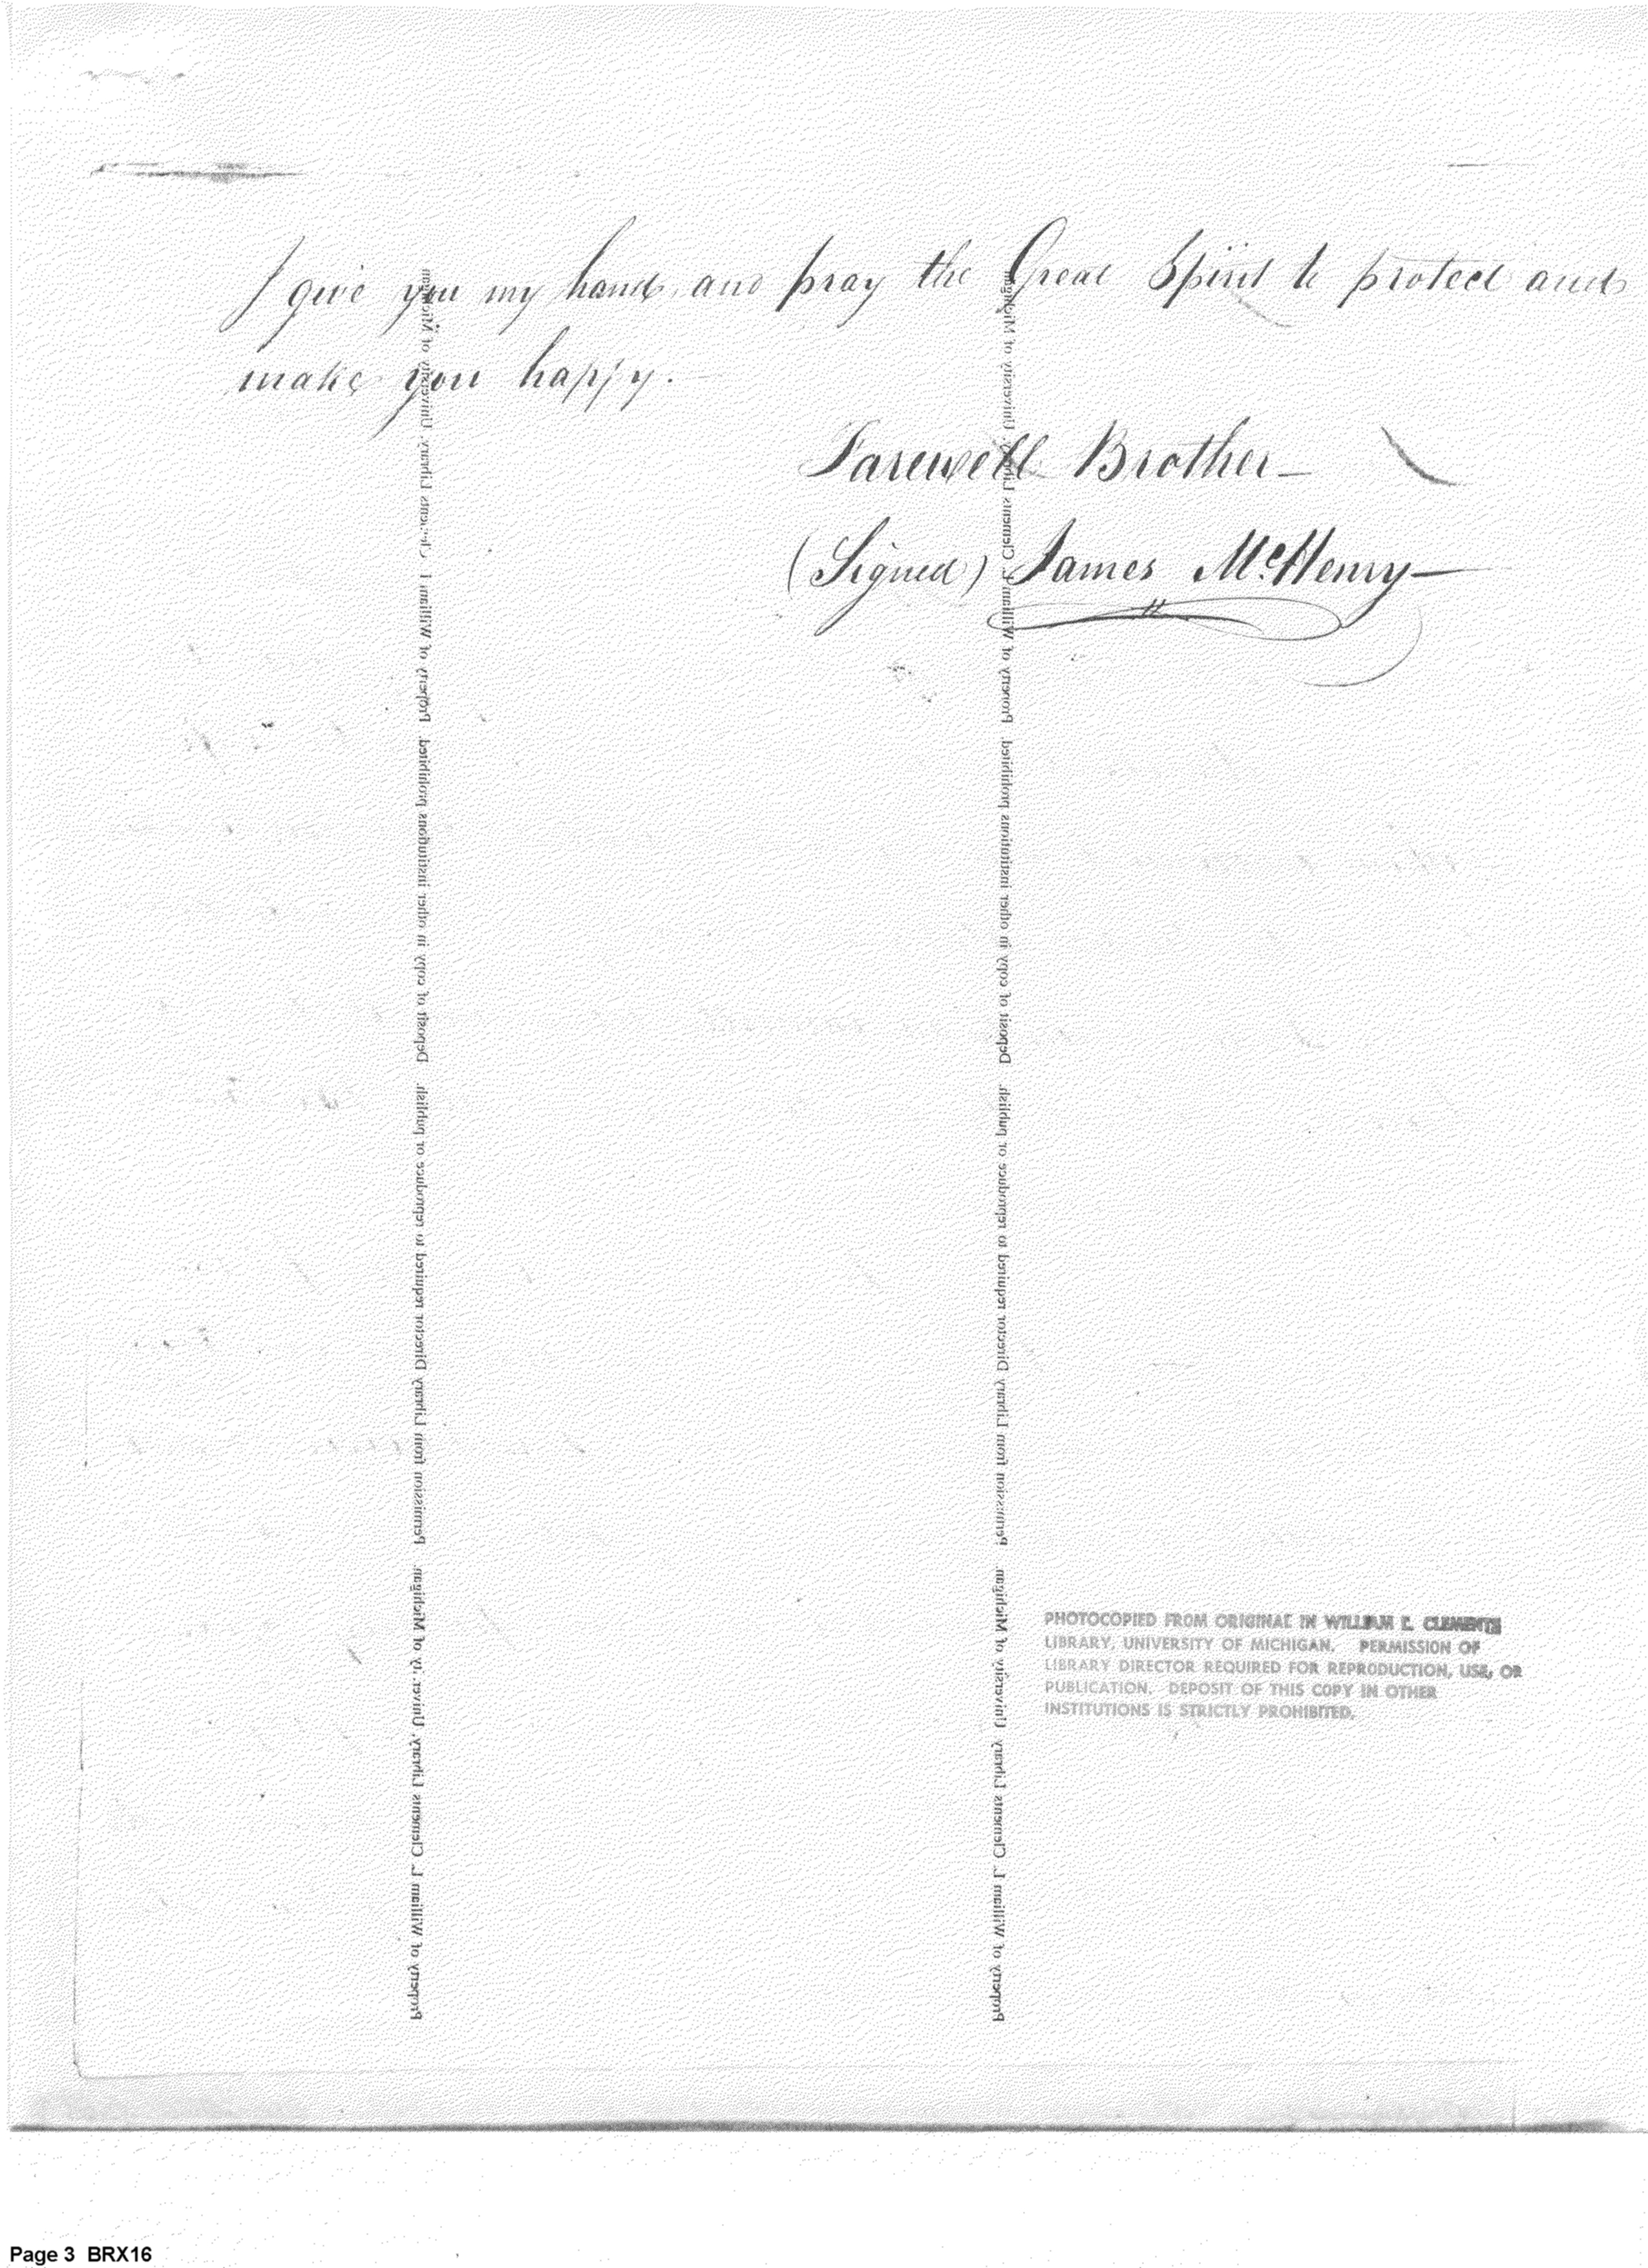 I give you my hand, and pray the Great Spirit to protect and
make you happy.
Farewell Brother—
(Signed) James McHenry—
Property of William L. Clements Library, University of Michigan. Permission from Library Director required to reproduce or publish. Deposit of copy in other institutions prohibited. Property of William L. Clements Library, University of Michigan
Property of William L. Clements Library, University of Michigan. Permission from Library Director required to reproduce or publish. Deposit of copy in other institutions prohibited. Property of William L. Clements Library, University of Michigan
PHOTOCOPIED FROM ORIGINAL IN WILLIAM L. CLEMENTS
LIBRARY, UNIVERSITY OF MICHIGAN. PERMISSION OF
LIBRARY DIRECTOR REQUIRED FOR REPRODUCTION, USE, OR
PUBLICATION. DEPOSIT OF THIS COPY IN OTHER
INSTITUTIONS IS STRICTLY PROHIBITED.
Page 3 BRX16